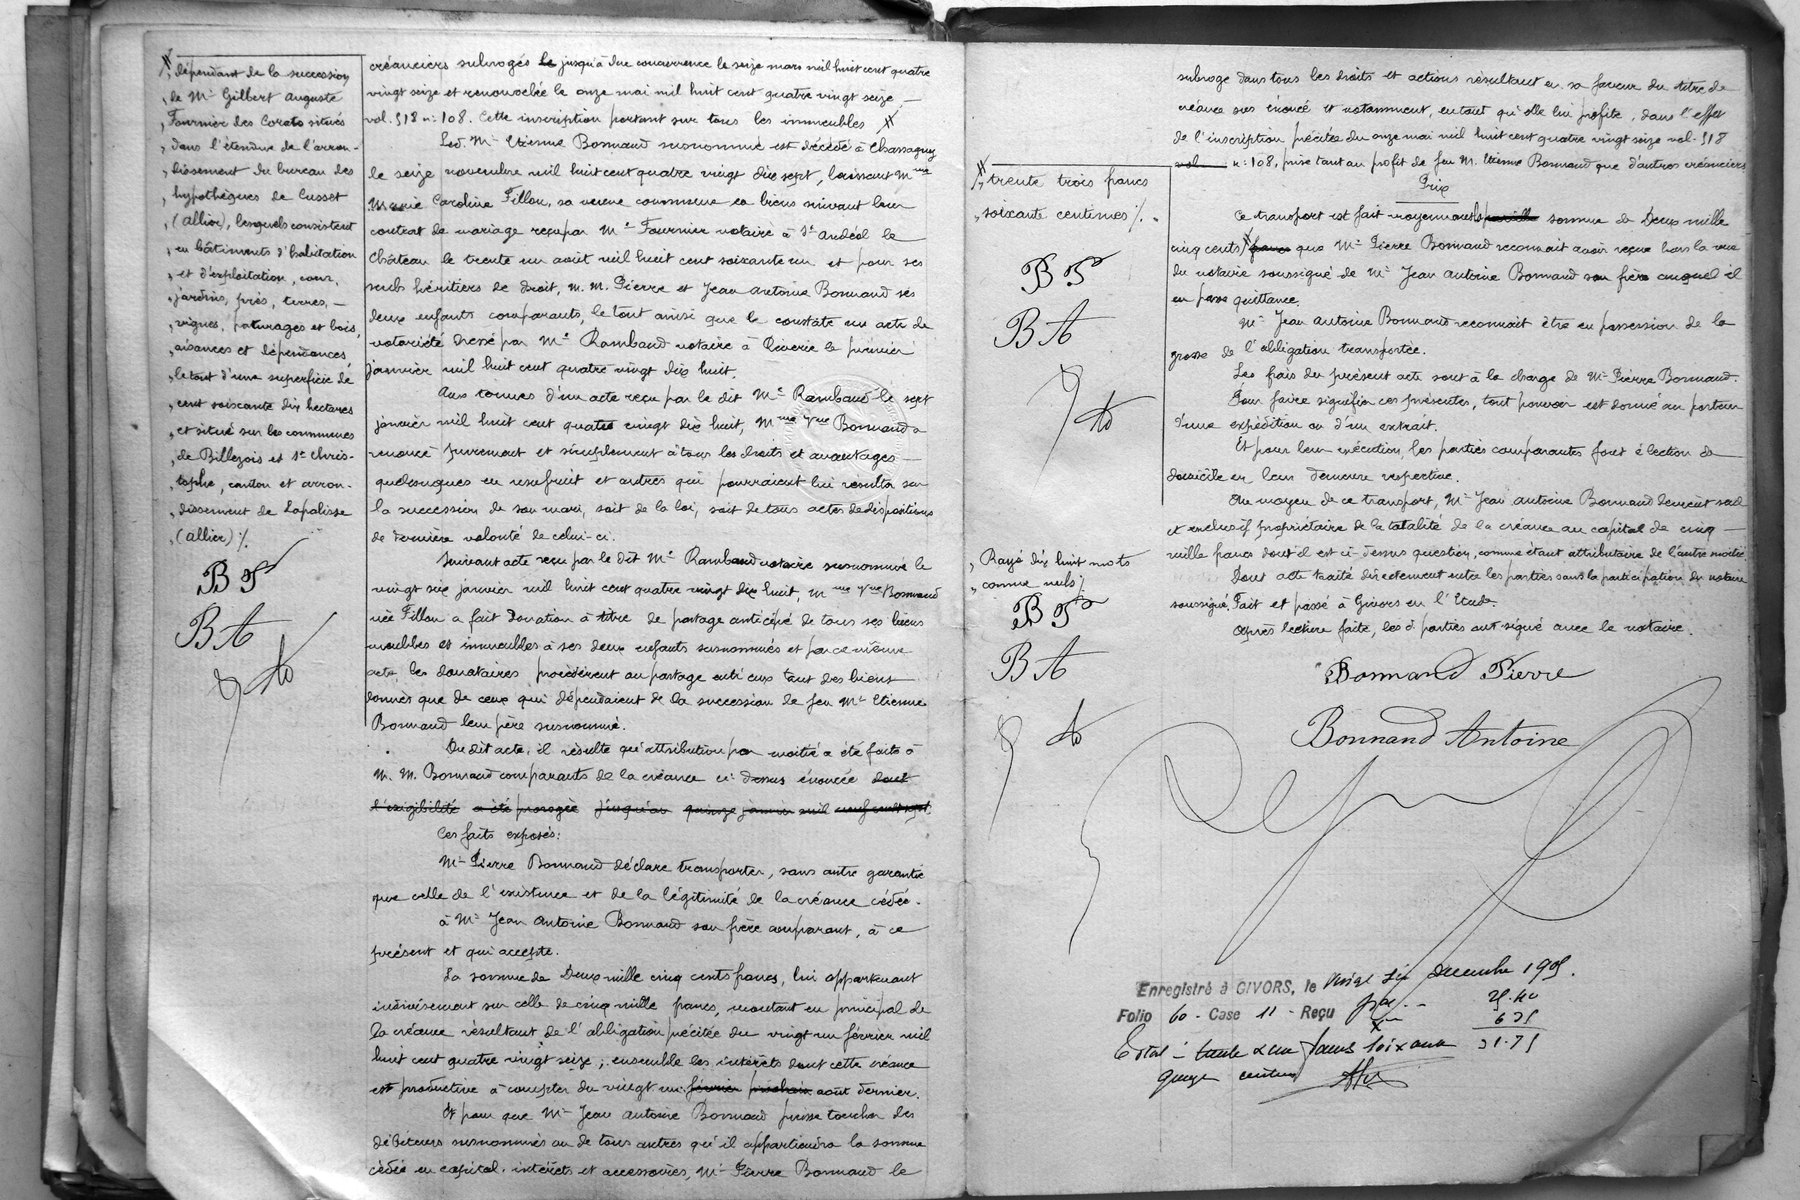 dépendant de la succession
de Mr Gilbert Auguste
Fournier des Corats situés
dans l'étendue de l'arron-
dissement du bureau des
hypothèques de Cusset
(Allier), lesquels consistent
en bâtiments d'habitation
et d'exploitation, cour,
jardins, prés, terres, —
vignes, paturages et bois,
aisances et dépendances,
le tout d'une superficie de
cent soixante dix hectares
et situé sur les communes
de Billezois et St Chris-
tophe, canton et arron-
dissement de Lapalisse
(Allier) ./.
BP
BA
créanciers subrogés jusqu'à due concurrence le seize mars mil huit cent quatre
vingt seize et renouvelée le onze mai mil huit cent quatre vingt seize —
vol. 518 n: 108. Cette inscription portant sur tous les immeubles
Led. Mr Etienne Bonnand susnommé est décédé à Chassagny
le seize novembre mil huit cent quatre vingt dix sept, laissant Mme
Marie Caroline Fillon, sa veuve commune en biens suivant leur
contrat de mariage reçu par Me Fournier notaire à St Andéol le
Château le trente un août mil huit cent soixante un et pour ses
seuls héritiers de droit, M. M. Pierre et Jean Antoine Bonnand ses
deux enfants comparants, le tout ainsi que le constate un acte de
notoriété dressé par Me Rambaud notaire à Riverie le premier
janvier mil huit cent quatre vingt dix huit.
Aux termes d'un acte reçu par le dit Me Rambaud le sept
janvier mil huit cent quatre vingt dix huit, Mme Vve Bonnand a
renoncé purement et simplement à tous les droits et avantages —
quelconques en usufruit et autres qui pourraient lui résulter sur
la succession de son mari, soit de la loi, soit de tous actes de dispositions
de dernière volonté de celui-ci.
Suivant acte reçu par le dit Me Rambaud notaire susnommé le
vingt six janvier mil huit cent quatre vingt dix huit, Mme Vve Bonnand
née Fillon a fait donation à titre de partage anticipé de tous ses biens
meubles et immeubles à ses deux enfants susnommés et par ce même
acte les donataires procédèrent au partage entr'eux tant des biens
donnés que de ceux qui dépendaient de la succession de feu Mr Etienne
Bonnand leur père susnommé.
Du dit acte, il résulte qu'attribution par moitié a été faite à
M. M. Bonnand comparants de la créance ci-dessus énoncée dont
l'exigibilité a été prorogée jusqu'au quinze janvier mil neuf cent sept.
Ces faits exposés:
Mr Pierre Bonnand déclare transporter, sans autre garantie
que celle de l'existence et de la légitimité de la créance cédée.
à Mr Jean Antoine Bonnand son frère comparant, à ce
présent et qui accepte.
La somme de Deux mille cinq cents francs, lui appartenant
indivisément sur celle de cinq mille francs, montant en principal de
la créance résultant de l'obligation précitée du vingt un février mil
huit cent quatre vingt seize; ensemble les intérêts dont cette créance
est productive à compter du vingt un février prochain août dernier.
Et pour que Mr Jean Antoine Bonnand puisse toucher des
débiteurs susnommés ou de tous autres qu'il appartiendra la somme
cédée en capital, intérêts et accessoires, Mr Pierre Bonnand le
subroge dans tous les droits et actions résultant en sa faveur du titre de
créance sus énoncé et notamment, en tant qu'elle lui profite, dans l'effet
de l'inscription précitée du onze mai mil huit cent quatre vingt seize vol. 518
vol n: 108, prise tant au profit de feu M. Etienne Bonnand que d'autres créanciers
Prix
trente trois francs
soixante centimes ./.
BP
BA
Ce transport est fait moyennant la pareille somme de Deux mille
cinq cents francs que Mr Pierre Bonnand reconnait avoir reçue hors la vue
du notaire soussigné de Mr Jean Antoine Bonnand son frère auquel il
en passe quittance.
Mr Jean Antoine Bonnand reconnait être en possession de la
grosse de l'obligation transportée.
Les frais du présent acte sont à la charge de Mr Pierre Bonnand.
Pour faire signifier ces présentes, tout pouvoir est donné au porteur
d'une expédition ou d'un extrait.
Et pour leur exécution, les parties comparantes font élection de
domicile en leur demeure respective.
Au moyen de ce transport, Mr Jean Antoine Bonnand devient seul
et exclusif propriétaire de la totalité de la créance au capital de cinq —
mille francs dont il est ci-dessus question, comme étant attributaire de l'autre moitié
Dont acte traité directement entre les parties sans la participation du notaire
soussigné. Fait et passé à Givors en l'Etude.
Après lecture faite, les parties ont signé avec le notaire.
Rayé dix huit mots
comme nuls ./.
BP
BA
Bonnand Pierre
Bonnand Antoine
Enregistré à GIVORS, le vingt six décembre 1905.
Folio 60 - Case 11 - Reçu
25.40
6 35
Total = trente un francs soixante 31.75
quinze centimes